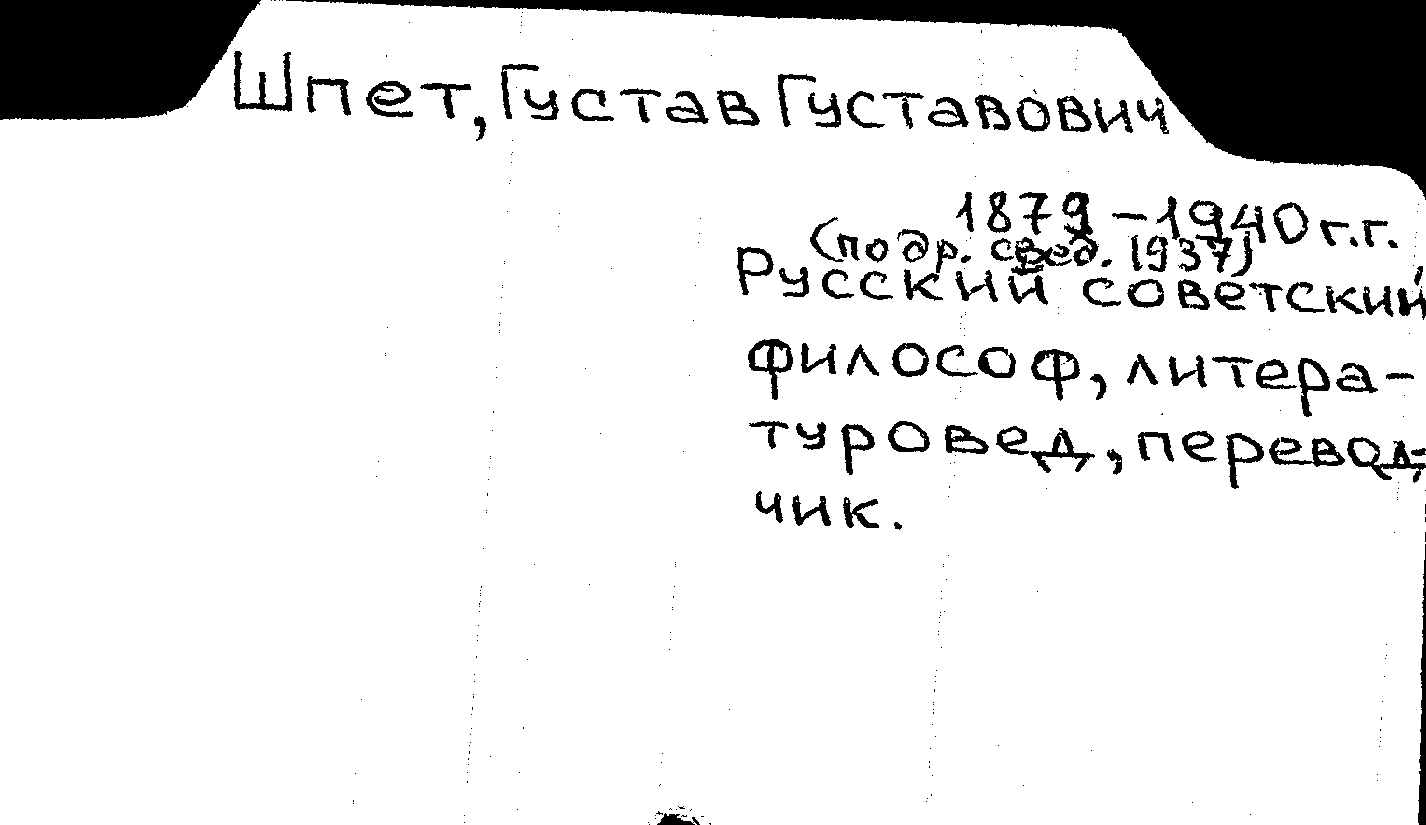 Шпет, Густав Густавович
1879 – 1940 г.г.
(по др. свед. 1937)
Русский советский
философ, литера-
туровед, перевод-
чик.